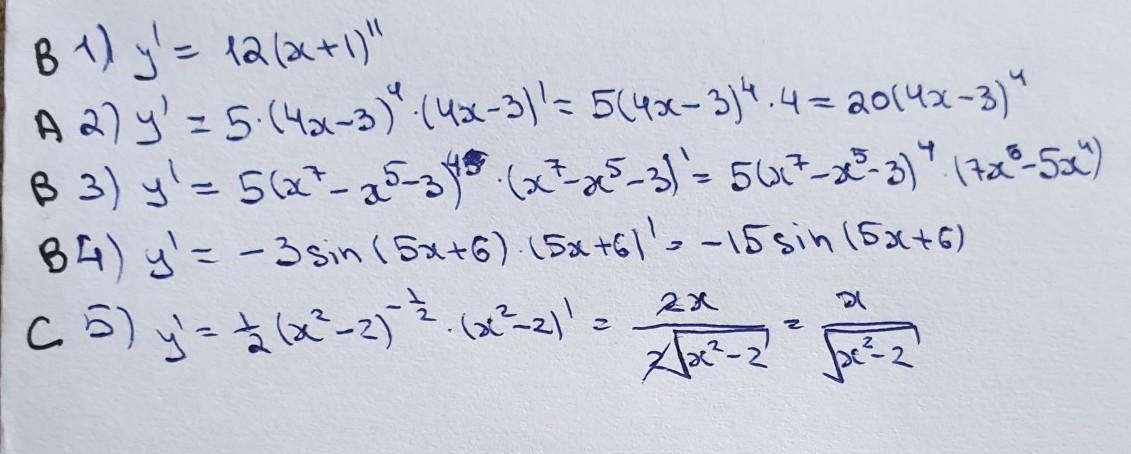 B 1) y' = 12(x+1)¹¹
A 2) y' = 5·(4x-3)⁴·(4x-3)' = 5(4x-3)⁴·4 = 20(4x-3)⁴
B 3) y' = 5(x⁷-x⁵-3)⁴·(x⁷-x⁵-3)' = 5(x⁷-x⁵-3)⁴·(7x⁶-5x⁴)
B 4) y' = -3sin(5x+6)·(5x+6)' = -15sin(5x+6)
C 5) y' = 1/2(x²-2)^(-1/2)·(x²-2)' = 2x/(2√(x²-2)) = x/√(x²-2)